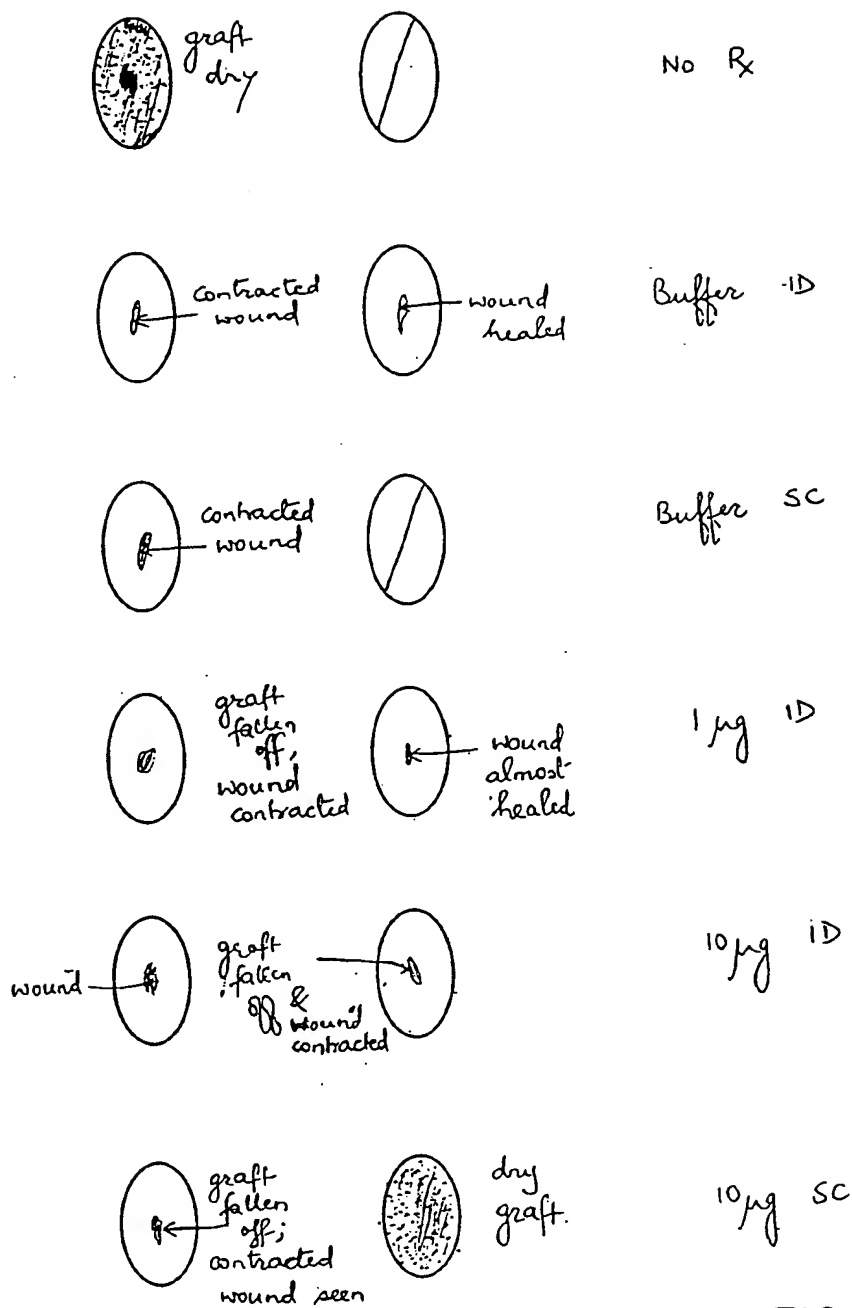 graft
dry
No Rx
contracted
wound
wound
healed
Buffer ID
contracted
wound
Buffer SC
graft
fallen
off;
wound
contracted
wound
almost
healed
1 µg ID
wound
graft
fallen
off &
wound
contracted
10 µg iD
graft
fallen
off;
contracted
wound seen
dry
graft.
10 µg SC